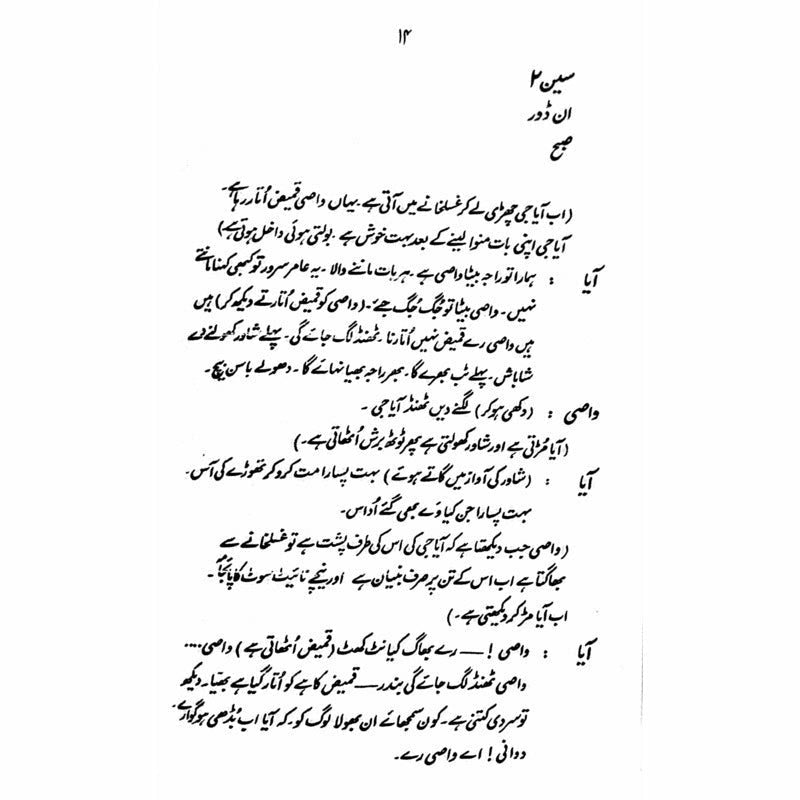 ۱۴
سین ۲
ان ڈور
صبح
(اب آیا جی چھڑی لے کر غسلخانے میں آتی ہے۔ یہاں واصی قمیض اُتار رہا ہے۔
آیا جی اپنی بات منوا لینے کے بعد بہت خوش ہے۔ بولتی ہوئی داخل ہوتی ہے)
آیا : ہمارا تو راجہ بیٹا واصی ہے۔ ہر بات ماننے والا۔ یہ عامر سرور تو کبھی کہنا مانتے
نہیں۔ واصی بیٹا تو جُگ جُگ جئے۔ (واصی کو قمیض اُتارتے دیکھ کر) ہیں
ہیں واصی رے قمیض نہیں اُتارنا۔ ٹھنڈ لگ جائے گی۔ پہلے شاور کھولنے دے
شاباش۔ پہلے ٹب بھرے گا۔ پھر راجہ بھیا نہائے گا۔ دھولے باسن بیچ۔
واصی : (دکھی ہو کر) لگنے دیں ٹھنڈ آیا جی۔
(آیا مُڑتی ہے اور شاور کھولتی ہے پھر ٹوتھ برش اُٹھاتی ہے۔)
آیا : (شاور کی آواز میں گاتے ہوئے) بہت پسارا مت کرو کر تھوڑے کی آس۔
بہت پسارا جن کیا وے بھی گئے اُداس۔
(واصی جب دیکھتا ہے کہ آیا جی کی اس کی طرف پشت ہے تو غسلخانے سے
بھاگتا ہے اب اس کے تن پر صرف بنیان ہے اور نیچے نائیٹ سوٹ کا پائجامہ۔
اب آیا مڑ کر دیکھتی ہے۔)
آیا : واصی! —— رے بھاگ گیا نٹ کھٹ (قمیض اُٹھاتی ہے) واصی....
واصی ٹھنڈ لگ جائے گی بندر —— قمیض کاہے کو اُتار گیا ہے بھیّا۔ دیکھ
تو سردی کتنی ہے۔ کون سمجھائے ان بھولا لوگ کو۔ کہ آیا اب بُڈھی ہو گوارے۔
دوانی! اے واصی رے۔